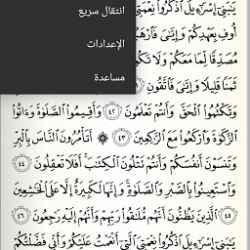 انتقال سريع
الإعدادات
مساعدة
يَٰبَنِىٓ إِسْرَٰٓءِيلَ ٱذْكُرُوا۟ نِعْمَتِىَ
أُوفِ بِعَهْدِكُمْ وَإِيَّٰىَ
مُصَدِّقًا لِّمَا مَعَكُمْ وَلَا
ثَمَنًا قَلِيلًا وَإِيَّٰىَ فَٱتَّقُونِ
وَتَكْتُمُوا۟ ٱلْحَقَّ وَأَنتُمْ تَعْلَمُونَ ٤٢ وَأَقِيمُوا۟ ٱلصَّلَوٰةَ وَءَاتُوا۟
ٱلزَّكَوٰةَ وَٱرْكَعُوا۟ مَعَ ٱلرَّٰكِعِينَ ٤٣ ۞ أَتَأْمُرُونَ ٱلنَّاسَ بِٱلْبِرِّ
وَتَنسَوْنَ أَنفُسَكُمْ وَأَنتُمْ تَتْلُونَ ٱلْكِتَٰبَ أَفَلَا تَعْقِلُونَ ٤٤
وَٱسْتَعِينُوا۟ بِٱلصَّبْرِ وَٱلصَّلَوٰةِ وَإِنَّهَا لَكَبِيرَةٌ إِلَّا عَلَى ٱلْخَٰشِعِينَ
٤٥ ٱلَّذِينَ يَظُنُّونَ أَنَّهُم مُّلَٰقُوا۟ رَبِّهِمْ وَأَنَّهُمْ إِلَيْهِ رَٰجِعُونَ ٤٦
يَٰبَنِىٓ إِسْرَٰٓءِيلَ ٱذْكُرُوا۟ نِعْمَتِىَ ٱلَّتِىٓ أَنْعَمْتُ عَلَيْكُمْ وَأَنِّى فَضَّلْتُكُمْ